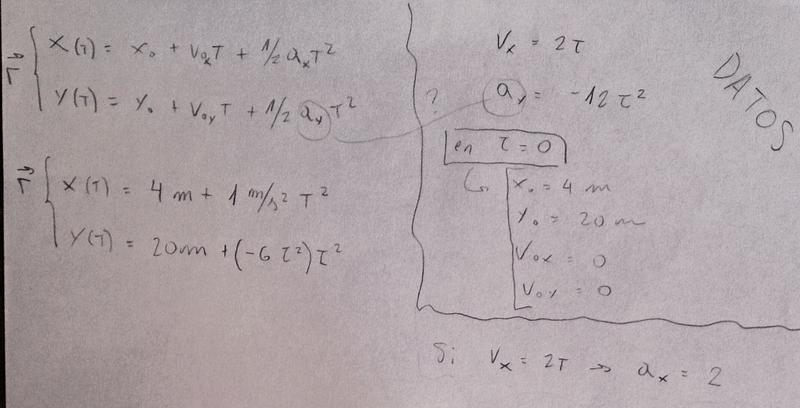 r⃗ { X(T) = X₀ + V₀ₓT + 1/2 aₓT²
Y(T) = Y₀ + V₀ᵧT + 1/2 aᵧT²
r⃗ { X(T) = 4 m + 1 m/s² T²
Y(T) = 20m + (-6 τ²)τ²
Vₓ = 2τ
? aᵧ = -12 τ²
en τ = 0
X₀ = 4 m
Y₀ = 20 m
V₀ₓ = 0
V₀ᵧ = 0
DATOS
Si Vₓ = 2T → aₓ = 2